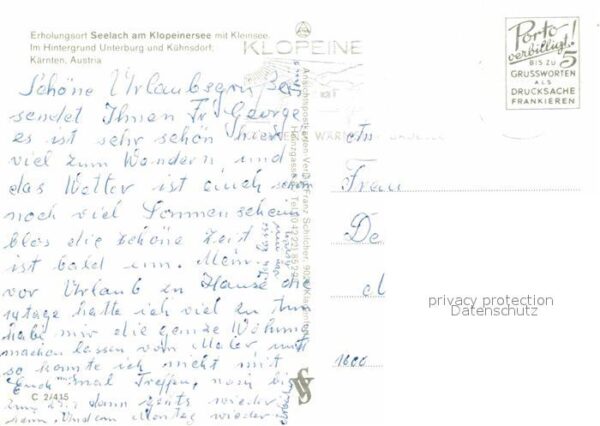 Erholungsort Seelach am Klopeinersee mit Kleinsee.
Im Hintergrund Unterburg und Kühnsdorf;
Kärnten, Austria
KLOPEINE
Porto
verbilligt!
BIS ZU 5
GRUSSWORTEN
ALS
DRUCKSACHE
FRANKIEREN
Schöne Urlaubsgrüße
sendet Ihnen Fr. George
es ist sehr schön hier
viel zum Wandern und
das Wetter ist auch schön
noch viel Sonnenschein
blos die schöne Zeit
ist bald um. Mein
vor Urlaub zu Hause die
14 tage hatte ich viel zu tun
habe mir die ganze Wohnung
machen lassen vom Maler und
so konnte ich nicht mit
Euch mal Treffen, noch bis
dann gehts wieder
Montag wieder
C 2/415
An
Frau
De
1000
privacy protection
Datenschutz